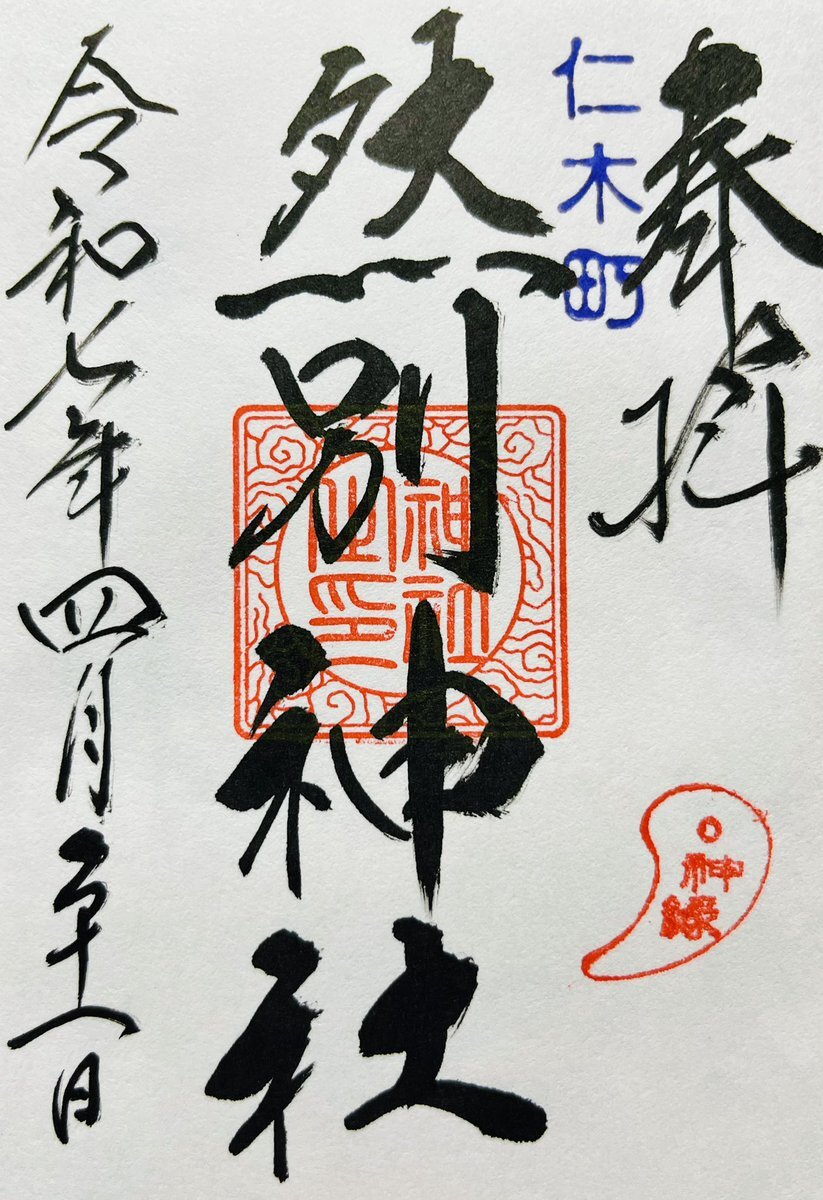 奉拝
仁木町
然別神社
神社
之印
神縁
令和七年四月二十八日